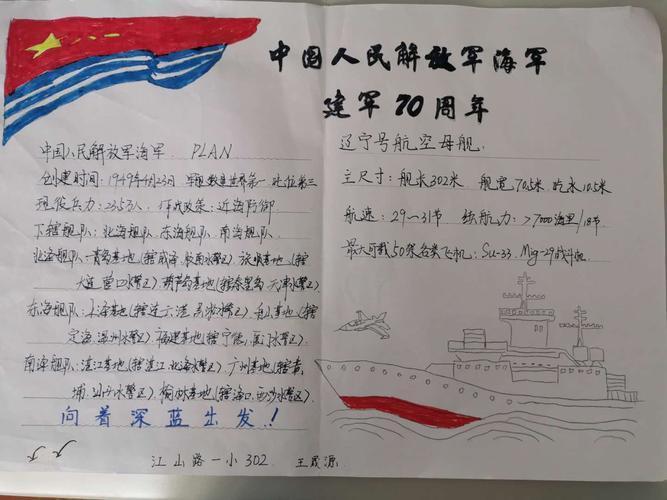 中国人民解放军海军
建军70周年
中国人民解放军海军 PLAN
创建时间:1949年4月23日 军舰数量世界第一 吨位第三
现役兵力:23.5万人 作战政策:近海防御
下辖舰队:北海舰队 东海舰队 南海舰队
北海舰队—青岛基地(辖威海、胶南水警区)、旅顺基地(辖
大连 营口水警区)葫芦岛基地(辖秦皇岛 天津水警区)
东海舰队:上海基地(辖连云港、吴淞水警区)、舟山基地(辖
定海、温州水警区)、福建基地(辖宁德、厦门水警区)
南海舰队:湛江基地(辖湛江、北海水警区)、广州基地(辖黄
埔、汕头水警区)、榆林基地(辖海口、西沙水警区)
向着深蓝出发!
辽宁号航空母舰.
主尺寸:舰长302米 舰宽70.5米 吃水10.5米
航速:29~31节 续航力:>7000海里/18节
最大可载50架各类飞机:Su-33. Mig-29战斗机
江山路一小302 王晟源